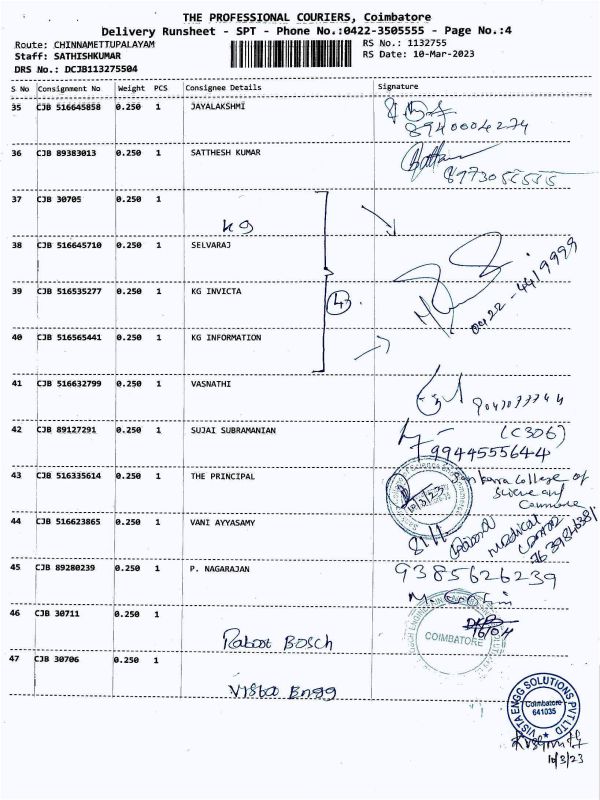 THE PROFESSIONAL COURIERS, Coimbatore
Delivery Runsheet - SPT - Phone No.:0422-3505555 - Page No.:4
Route: CHINNAMETTUPALAYAM
RS No.: 1132755
Staff: SATHISHKUMAR
RS Date: 10-Mar-2023
DRS No.: DCJB113275504
S No Consignment No Weight PCS Consignee Details Signature
35 CJB 516645858 0.250 1 JAYALAKSHMI
8940004274
36 CJB 89383013 0.250 1 SATTHESH KUMAR
8773055555
37 CJB 30705 0.250 1
KG
38 CJB 516645710 0.250 1 SELVARAJ
39 CJB 516535277 0.250 1 KG INVICTA
0422-4419999
40 CJB 516565441 0.250 1 KG INFORMATION
41 CJB 516632799 0.250 1 VASNATHI
42 CJB 89127291 0.250 1 SUJAI SUBRAMANIAN
(C306)
9944555644
43 CJB 516335614 0.250 1 THE PRINCIPAL
Sankara College of
Science and
Commerce
10/3/23
44 CJB 516623865 0.250 1 VANI AYYASAMY
Medical
45 CJB 89280239 0.250 1 P. NAGARAJAN
9385626239
46 CJB 30711 0.250 1
Robot BOSCH
COIMBATORE
47 CJB 30706 0.250 1
Vista Engg
VISTA ENGG SOLUTIONS PVT LTD
Coimbatore
641035
10/3/23